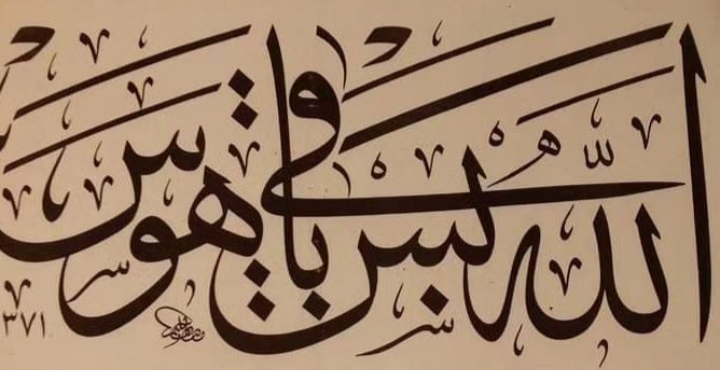 الله بس باقی هوس
٣٧١